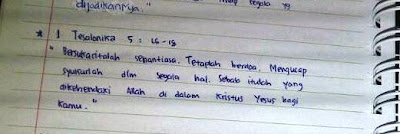 dijadikannya."
* 1 Tesalonika 5 : 16-18
"Bersukacitalah senantiasa. Tetaplah berdoa. Mengucap
syukurlah dlm segala hal. Sebab itulah yang
dikehendaki Allah di dalam Kristus Yesus bagi
kamu."